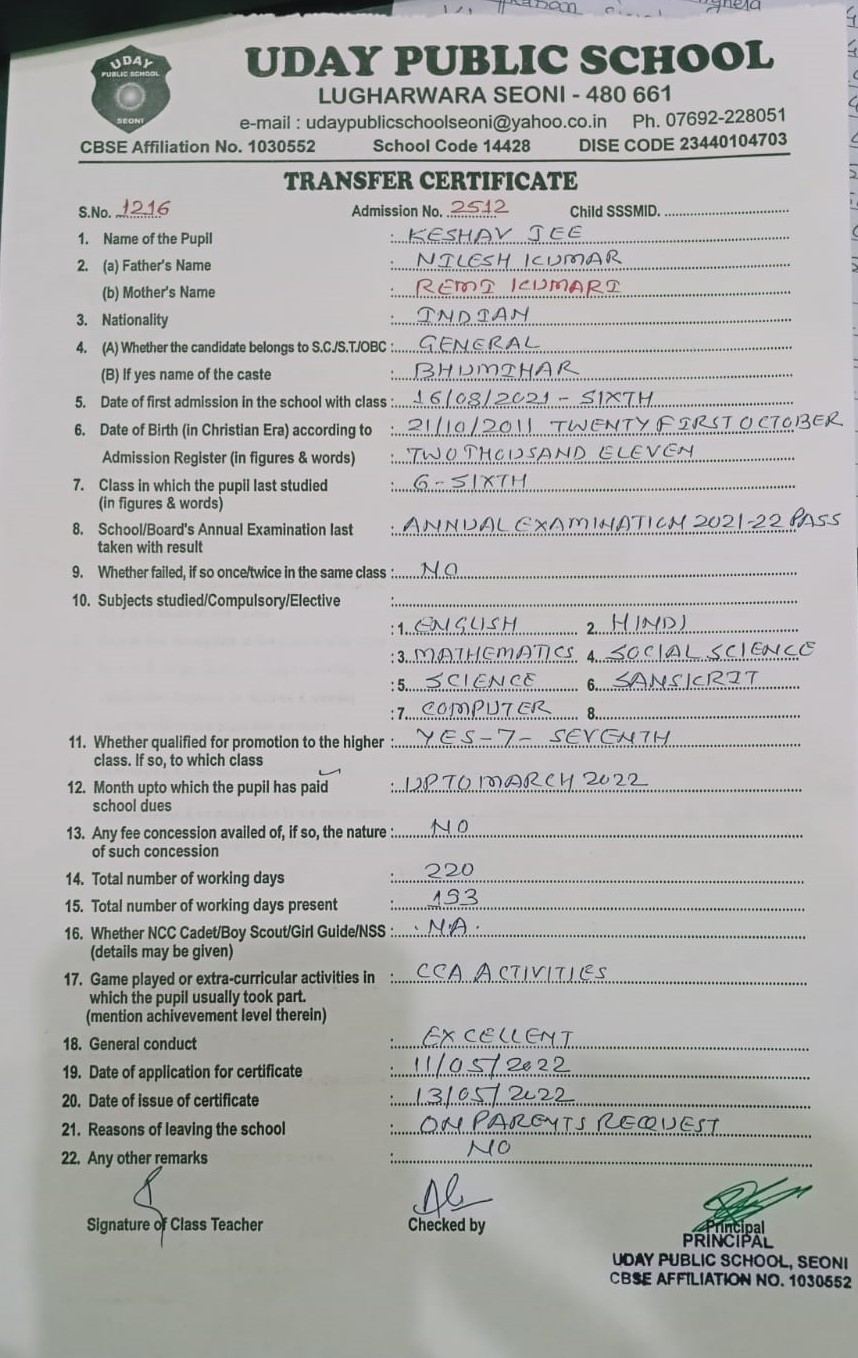 UDAY
PUBLIC SCHOOL
SEONI
UDAY PUBLIC SCHOOL
LUGHARWARA SEONI - 480 661
e-mail : udaypublicschoolseoni@yahoo.co.in Ph. 07692-228051
CBSE Affiliation No. 1030552 School Code 14428 DISE CODE 23440104703
TRANSFER CERTIFICATE
S.No. 1216 Admission No. 2512 Child SSSMID.
1. Name of the Pupil : KESHAV JEE
2. (a) Father's Name : NILESH KUMAR
(b) Mother's Name : REMI KUMARI
3. Nationality : INDIAN
4. (A) Whether the candidate belongs to S.C./S.T./OBC : GENERAL
(B) If yes name of the caste : BHUMIHAR
5. Date of first admission in the school with class : 16/08/2021 - SIXTH
6. Date of Birth (in Christian Era) according to : 21/10/2011 TWENTY FIRST OCTOBER
Admission Register (in figures & words) : TWO THOUSAND ELEVEN
7. Class in which the pupil last studied : 6 - SIXTH
(in figures & words)
8. School/Board's Annual Examination last : ANNUAL EXAMINATION 2021-22 PASS
taken with result
9. Whether failed, if so once/twice in the same class : NO
10. Subjects studied/Compulsory/Elective :
: 1. ENGLISH 2. HINDI
: 3. MATHEMATICS 4. SOCIAL SCIENCE
: 5. SCIENCE 6. SANSKRIT
: 7. COMPUTER 8.
11. Whether qualified for promotion to the higher : YES - 7 - SEVENTH
class. If so, to which class
12. Month upto which the pupil has paid : UP TO MARCH 2022
school dues
13. Any fee concession availed of, if so, the nature : NO
of such concession
14. Total number of working days : 220
15. Total number of working days present : 193
16. Whether NCC Cadet/Boy Scout/Girl Guide/NSS : N.A.
(details may be given)
17. Game played or extra-curricular activities in : CCA ACTIVITIES
which the pupil usually took part.
(mention achivevement level therein)
18. General conduct : EXCELLENT
19. Date of application for certificate : 11/05/2022
20. Date of issue of certificate : 13/05/2022
21. Reasons of leaving the school : ON PARENTS REQUEST
22. Any other remarks : NO
Signature of Class Teacher Checked by Principal
PRINCIPAL
UDAY PUBLIC SCHOOL, SEONI
CBSE AFFILIATION NO. 1030552